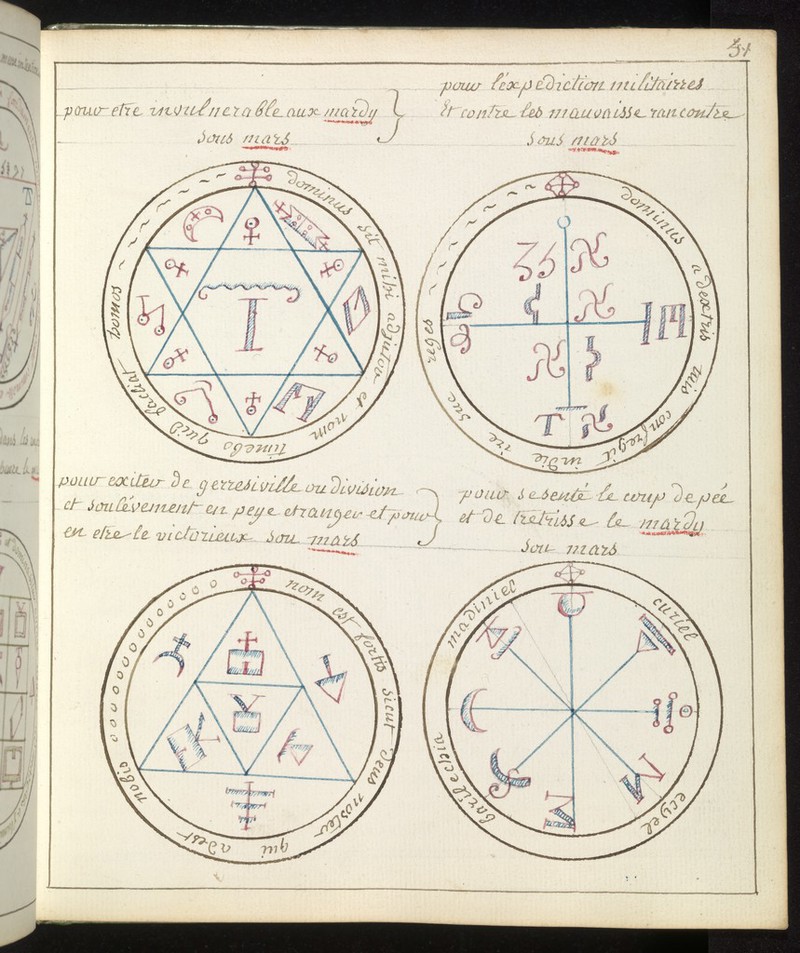 51
pour etre invulnerable aux mardy
sous mars
pour l'expediction militairres
Et contre les mauvaisse rancontre
sous mars
dominus sit mihi adjutor et nom timebo quid faciat homos
dominus a dextris tuis confregit in die ire sue reges
pour exiter de gerresiville ou division
et soulévement en peye etranger et pour
en etre le victorieux sou mars
pour se senté le coup de pée
et de tretrisse le mardy
sou mars
nom est fortis sicut Deus noster qui adest nobis
madiniel
curiel
ecyel
barilechia